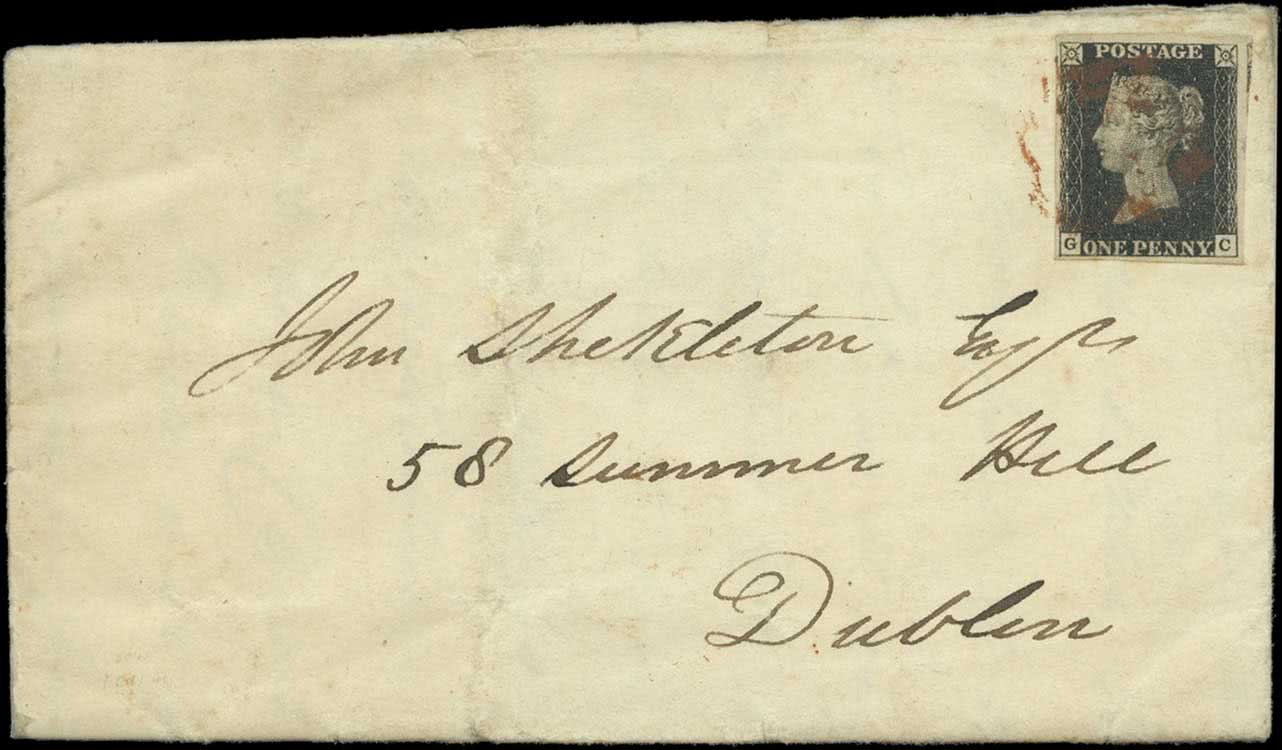 POSTAGE
G ONE PENNY. C
John Shekleton Esqr
58 Summer Hill
Dublin